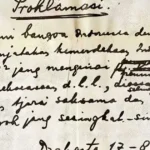 Proklamasi.
mi bangsa Indonesia de
njatakan kemerdekaan
2 jang mengenai
d.l.l.,
tjara saksama da
jang sesingkat-
Djakarta 17-8